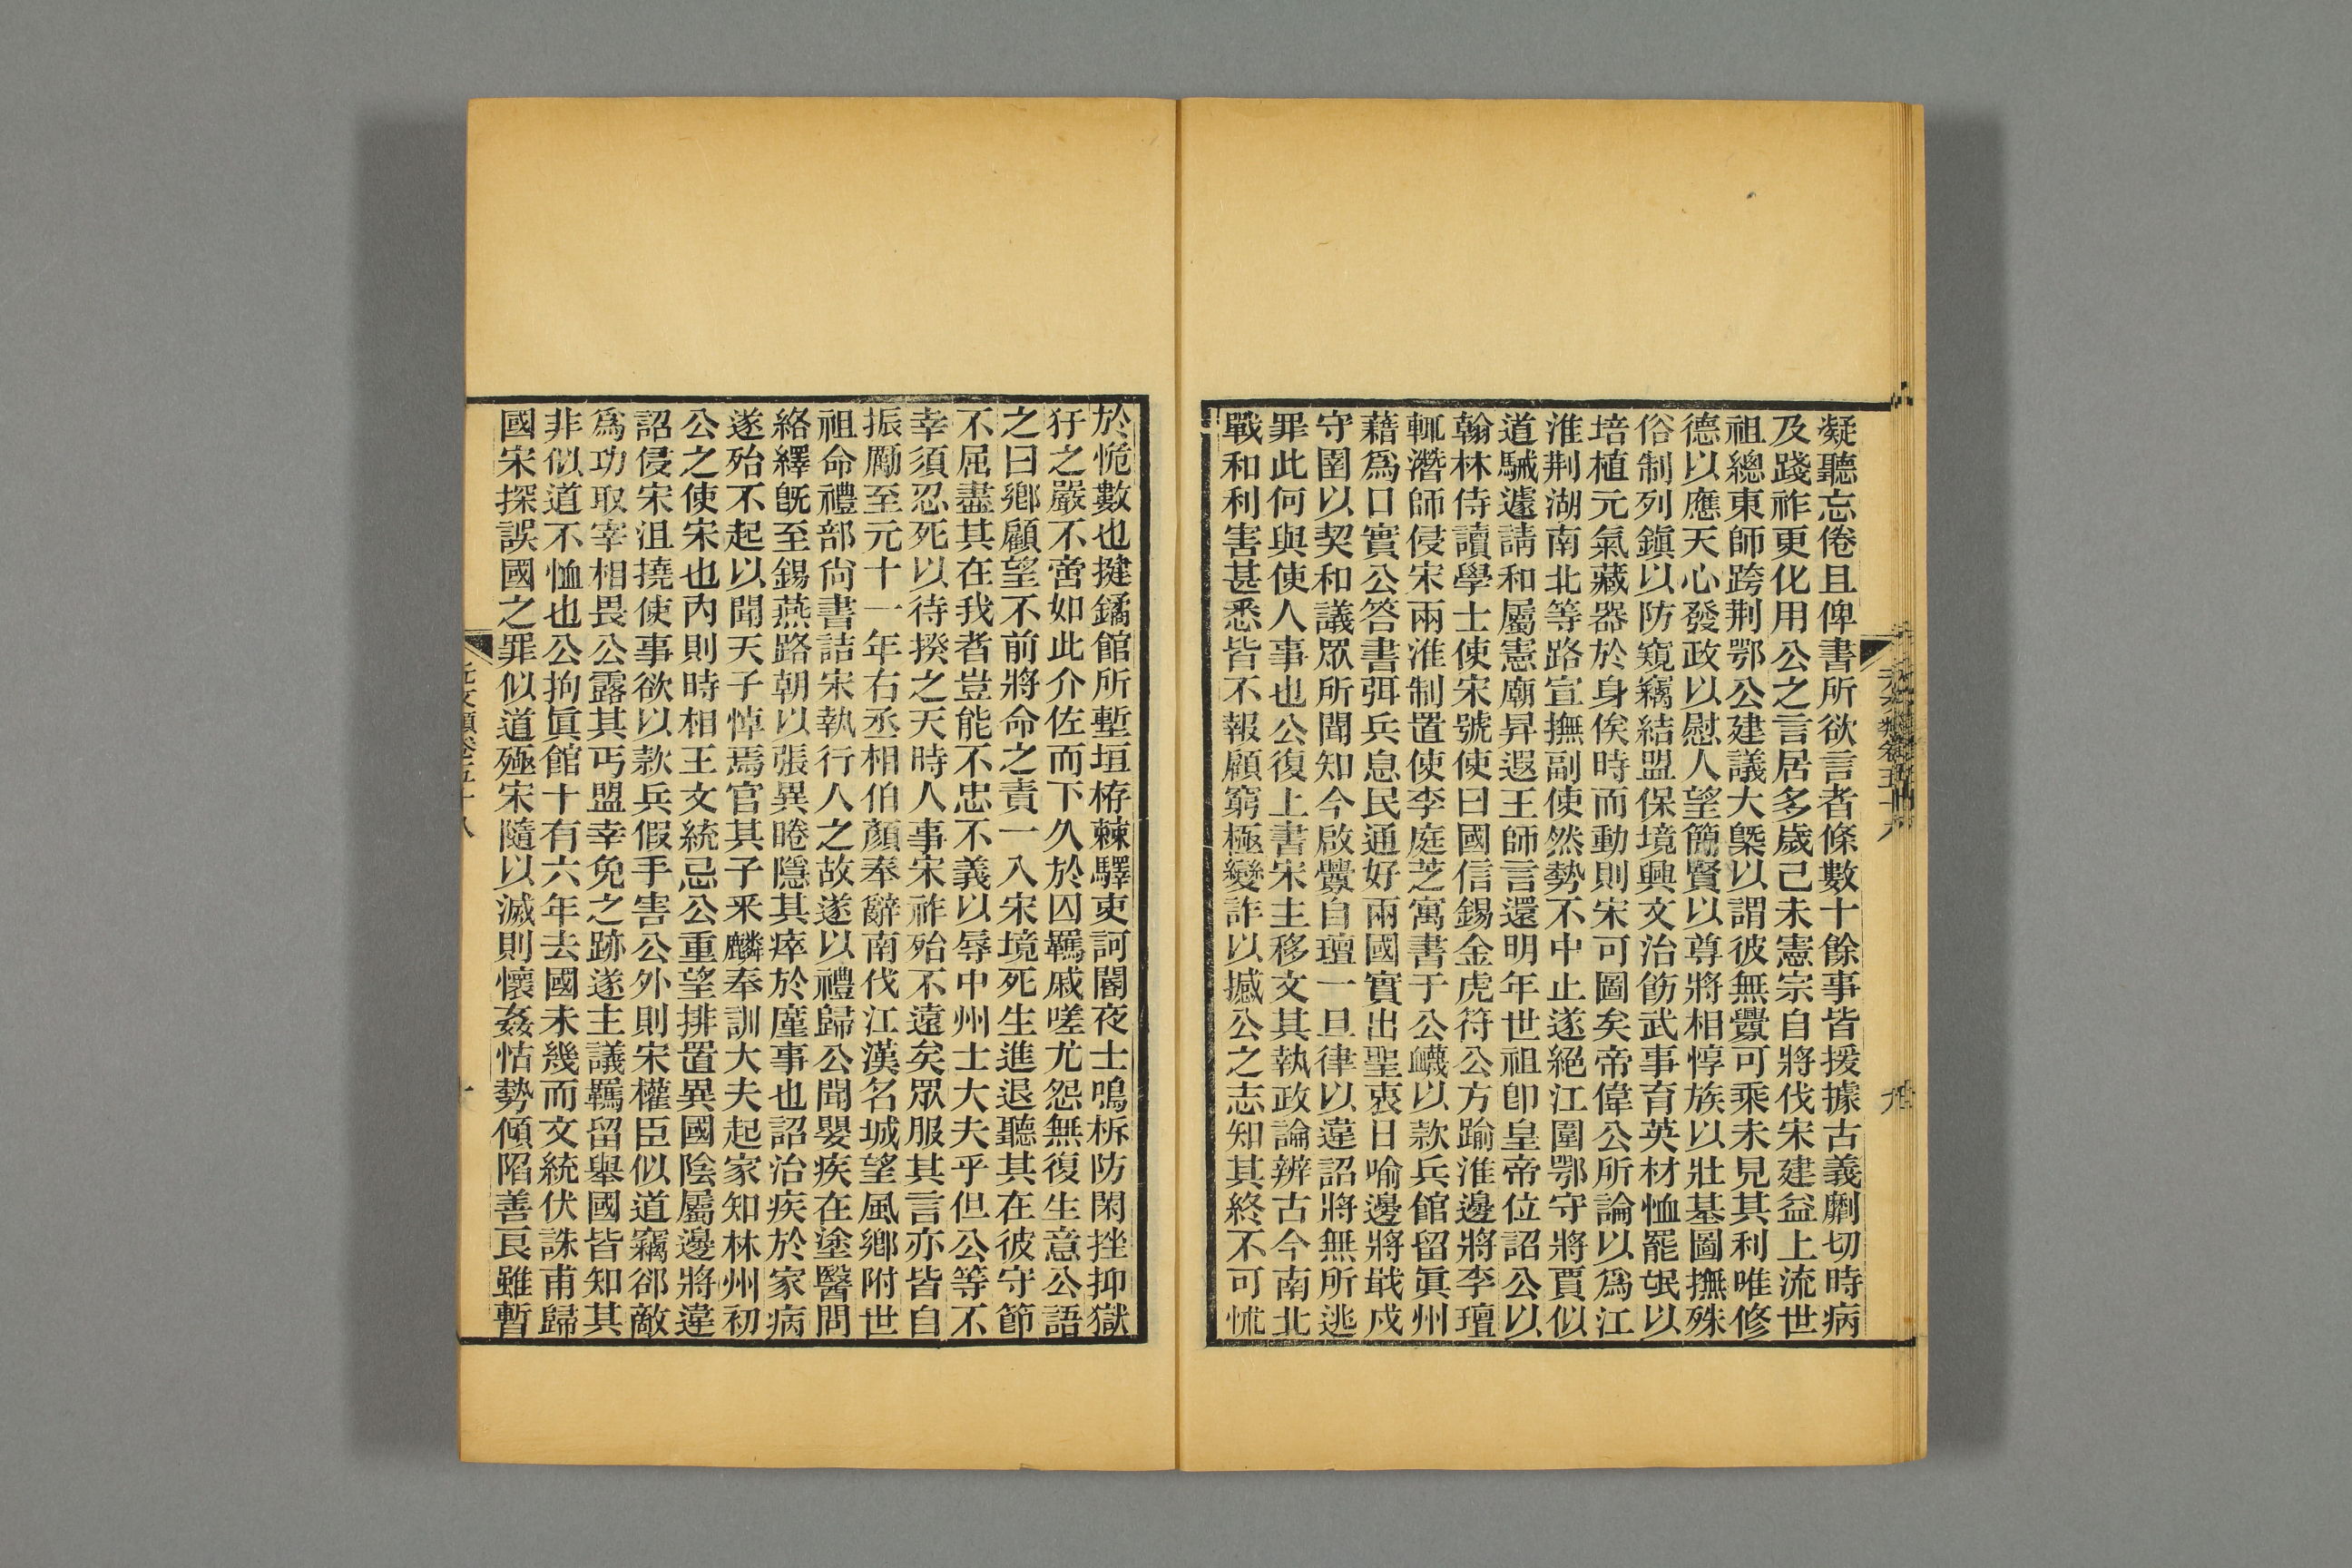 凝聽忘倦且俾書所欲言者條數十餘事皆援據古義劘切時病
及踐祚更化用公之言居多歲己未憲宗自將伐宋建益上流世
祖總東師跨荆鄂公建議大槩以謂彼無釁可乘未見其利唯修
德以應天心發政以慰人望簡賢以尊將相惇族以壯基圖撫殊
俗制列鎭以防窺竊結盟保境興文治飭武事育英材恤罷氓以
培植元氣藏器於身俟時而動則宋可圖矣帝偉公所論以爲江
淮荆湖南北等路宣撫副使然勢不中止遂絕江圍鄂守將賈似
道駴遽請和屬憲廟昇遐王師言還明年世祖卽皇帝位詔公以
翰林侍讀學士使宋號使曰國信錫金虎符公方踰淮邊將李璮
輒潛師侵宋兩淮制置使李庭芝寓書于公衊以款兵館留眞州
藉爲口實公答書弭兵息民通好兩國實出聖衷日喻邊將戢戍
守圉以契和議眾所聞知今啟釁自璮一旦律以違詔將無所逃
罪此何與使人事也公復上書宋主移文其執政論辨古今南北
戰和利害甚悉皆不報顧窮極變詐以撼公之志知其終不可怵
於恑數也揵鐍館所塹垣栫棘驛吏訶閽夜士鳴柝防閑挫抑獄
犴之嚴不啻如此介佐而下久於囚羈戚嗟尤怨無復生意公語
之曰鄕顧望不前將命之責一入宋境死生進退聽其在彼守節
不屈盡其在我者豈能不忠不義以辱中州士大夫乎但公等不
幸須忍死以待揆之天時人事宋祚殆不遠矣眾服其言亦皆自
振勵至元十一年右丞相伯顏奉辭南伐江漢名城望風鄕附世
祖命禮部尙書詰宋執行人之故遂以禮歸公聞嬰疾在塗醫問
絡繹旣至錫燕路朝以張異睠隱其瘁於廑事也詔治疾於家病
遂殆不起以聞天子悼焉官其子采麟奉訓大夫起家知林州初
公之使宋也內則時相王文統忌公重望排置異國陰屬邊將違
詔侵宋沮撓使事欲以款兵假手害公外則宋權臣似道竊郤敵
爲功取宰相畏公露其丐盟幸免之跡遂主議羈留舉國皆知其
非似道不恤也公拘眞館十有六年去國未幾而文統伏誅甫歸
國宋探誤國之罪似道殛宋隨以滅則懷姦怙勢傾陷善良雖暫
元文類卷五十八
十